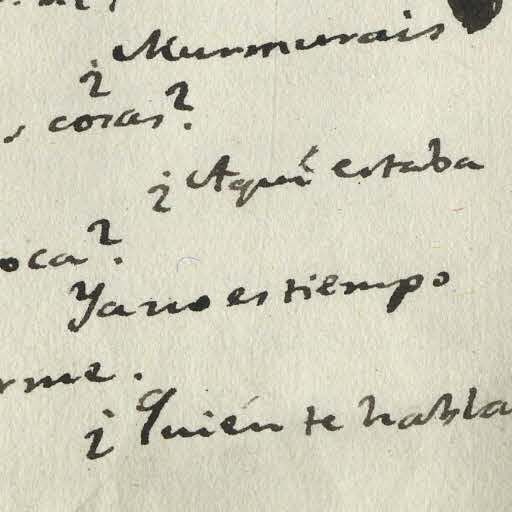 ¿Murmurais
s cosas?
¿Aquí estaba
oca?
Ya no es tiempo
rme.
¿Quién te habla